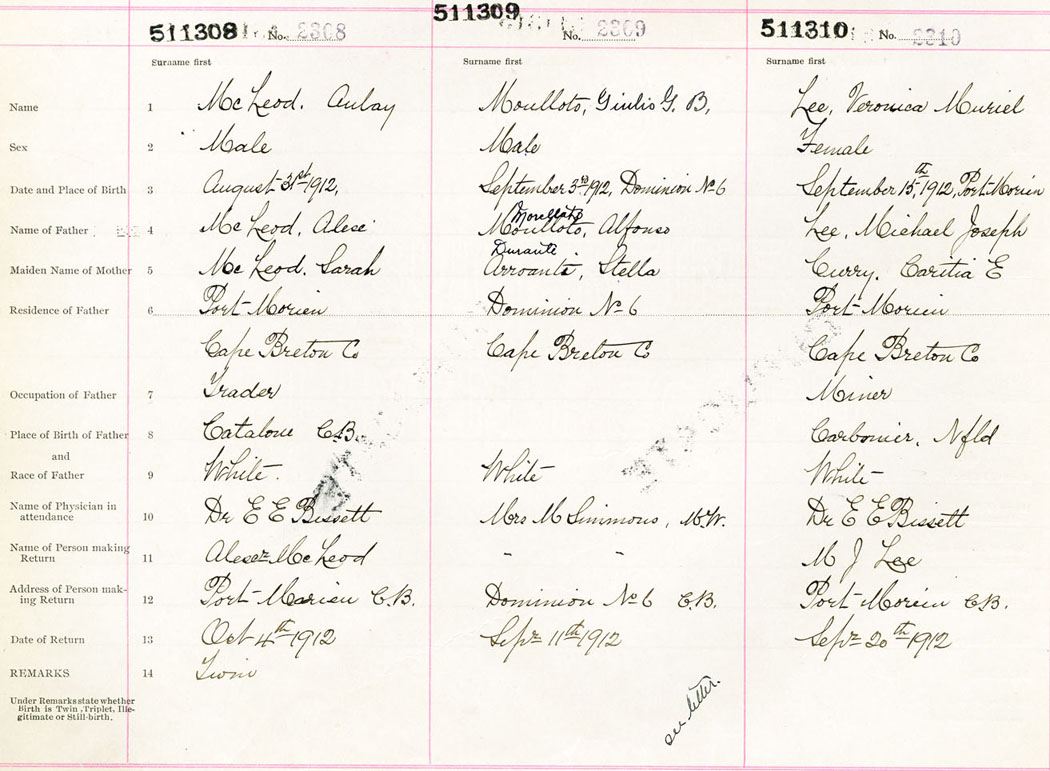 511308 No. 2308
511309 No. 2309
511310 No. 2310
Surname first Surname first Surname first
Name 1 McLeod. Aubay Moulloto, Giulio G. B, Lee, Veronica Muriel
Sex 2 Male Male Female
Date and Place of Birth 3 August 31st 1912, September 3rd 1912, Dominion No 6 September 15th, 1912, Port Morien
Morellato
Name of Father 4 McLeod, Alese Moulloto, Alfonso Lee, Michael Joseph
Durante
Maiden Name of Mother 5 McLeod. Sarah Arroante, Stella Curry. Caritia E
Residence of Father 6 Port Morien Dominion No 6 Port Morien
Cape Breton Co Cape Breton Co Cape Breton Co
Occupation of Father 7 Trader Miner
Place of Birth of Father 8 Catalone C.B. Carbonier, Nfld
and
Race of Father 9 White. White White
Name of Physician in
attendance 10 Dr E E Bissett Mrs M Simmons, M.W. Dr E E Bissett
Name of Person making
Return 11 Alesez McLeod " " M J Lee
Address of Person mak-
ing Return 12 Port Marien C.B. Dominion No 6 C.B. Port Morien C.B.
Date of Return 13 Oct 4th 1912 Sept 11th 1912 Sept 20th 1912
REMARKS 14 Twin
Under Remarks state whether
Birth is Twin, Triplet, Ille-
gitimate or Still-birth.
see letter.